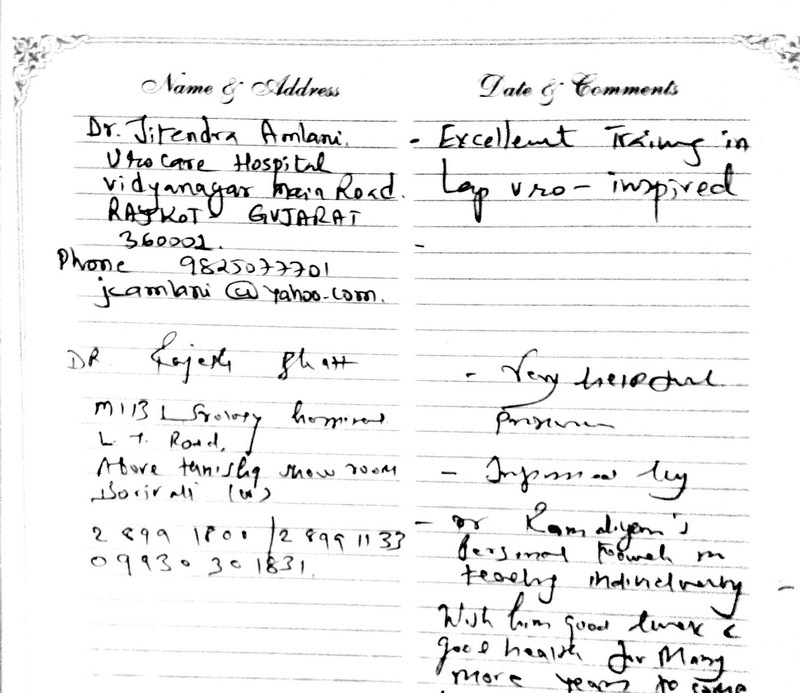 Name & Address
Date & Comments
Dr. Jitendra Amlani.
Uro care Hospital
vidyanagar main Road.
RAJKOT GUJARAT
360001.
Phone 9825077701
jcamlani@yahoo.com.
- Excellent Training in
Lap uro - inspired
-
DR Rajesh Bhatt
Urology hospital
L. T. Road,
Above tanishq show room
Borivali (w)
2 899 1800 / 2 899 1133
09930 301831.
- Very helpful
program
- Impressed by
- Dr Ramaliyam's
personal touch in
teaching individually
Wish him good luck &
good health for Many
more years to come